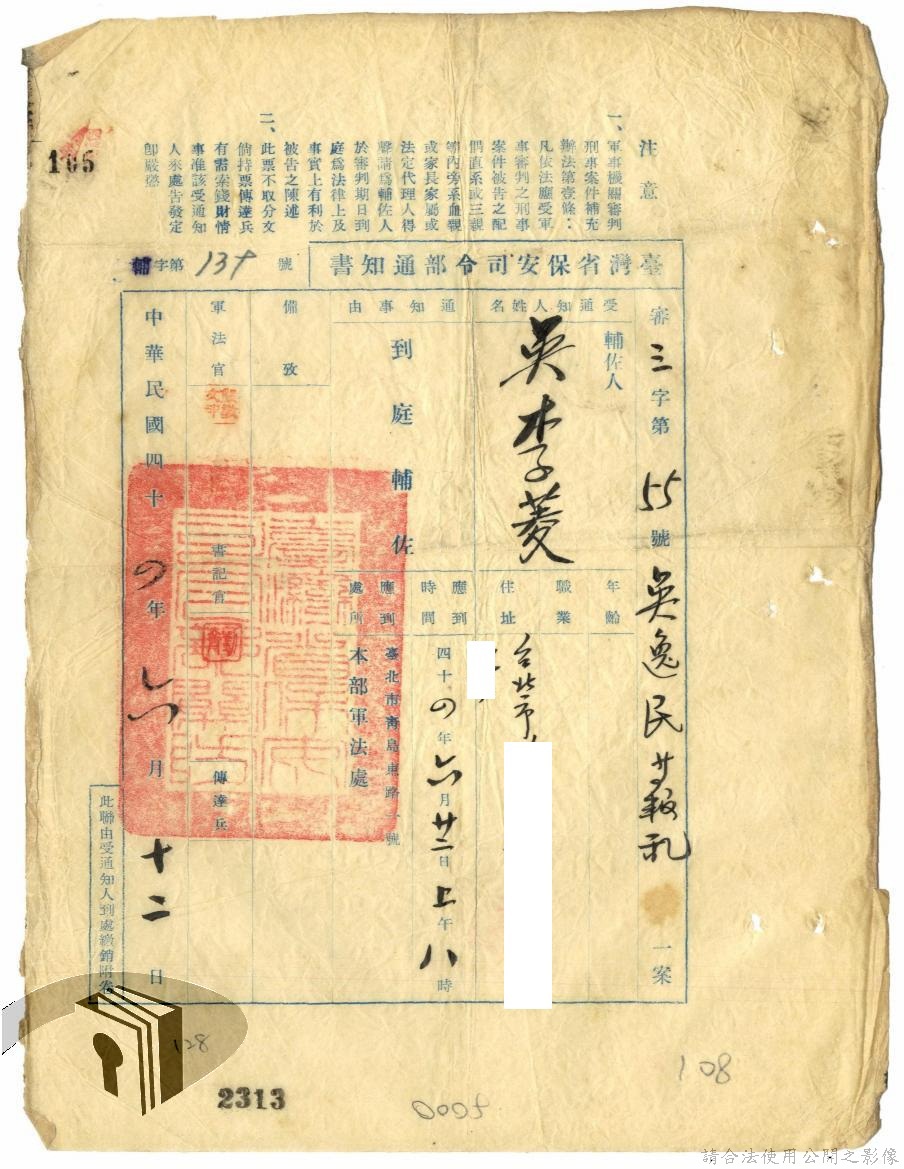 105
注意
一、軍事機關審判
刑事案件補充
辦法第壹條：
凡依法應受軍
事審判之刑事
案件被告之配
偶直系或三親
等內旁系血親
或家長家屬或
法定代理人得
聲請為輔佐人
於審判期日到
庭為法律上及
事實上有利於
被告之陳述
二、此票不取分文
倘持票傳達兵
有需索錢財情
事准該受通知
人來處告發定
卽嚴懲
臺灣省保安司令部通知書
輔字第 139 號
審三字第55號吳逸民等叛亂一案
受通知人姓名
輔佐人
吳李菱
年齡
職業
住址
台北市
通知事由
到庭輔佐
應到時間
四十四年六月廿二日上午八時
應到處所
臺北市青島東路一號
本部軍法處
備攷
軍法官
書記官
傳達兵
中華民國四十四年六月十二日
此聯由受通知人到處繳銷附卷
128
108
2313
0005
請合法使用公開之影像